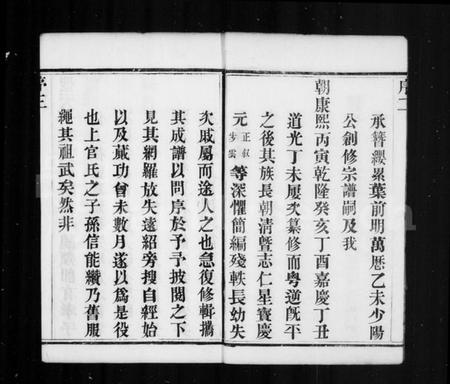 序二
承簪纓累葉前明萬厯乙未少陽
公創修宗譜嗣及我
朝康熙丙寅乾隆癸亥丁酉嘉慶丁丑
道光丁未屢次纂修而粵逆旣平
之後其族長朝清曁志仁星寶慶
元正叔步雲等深懼簡編殘軼長幼失
次戚屬而途人之也急復修輯攜
其成譜以問序於予予披閱之下
見其網羅放失遠紹旁搜自經始
以及蕆功曾未數月遂以爲是役
也上官氏之子孫信能纘乃舊服
繩其祖武矣然非
序三